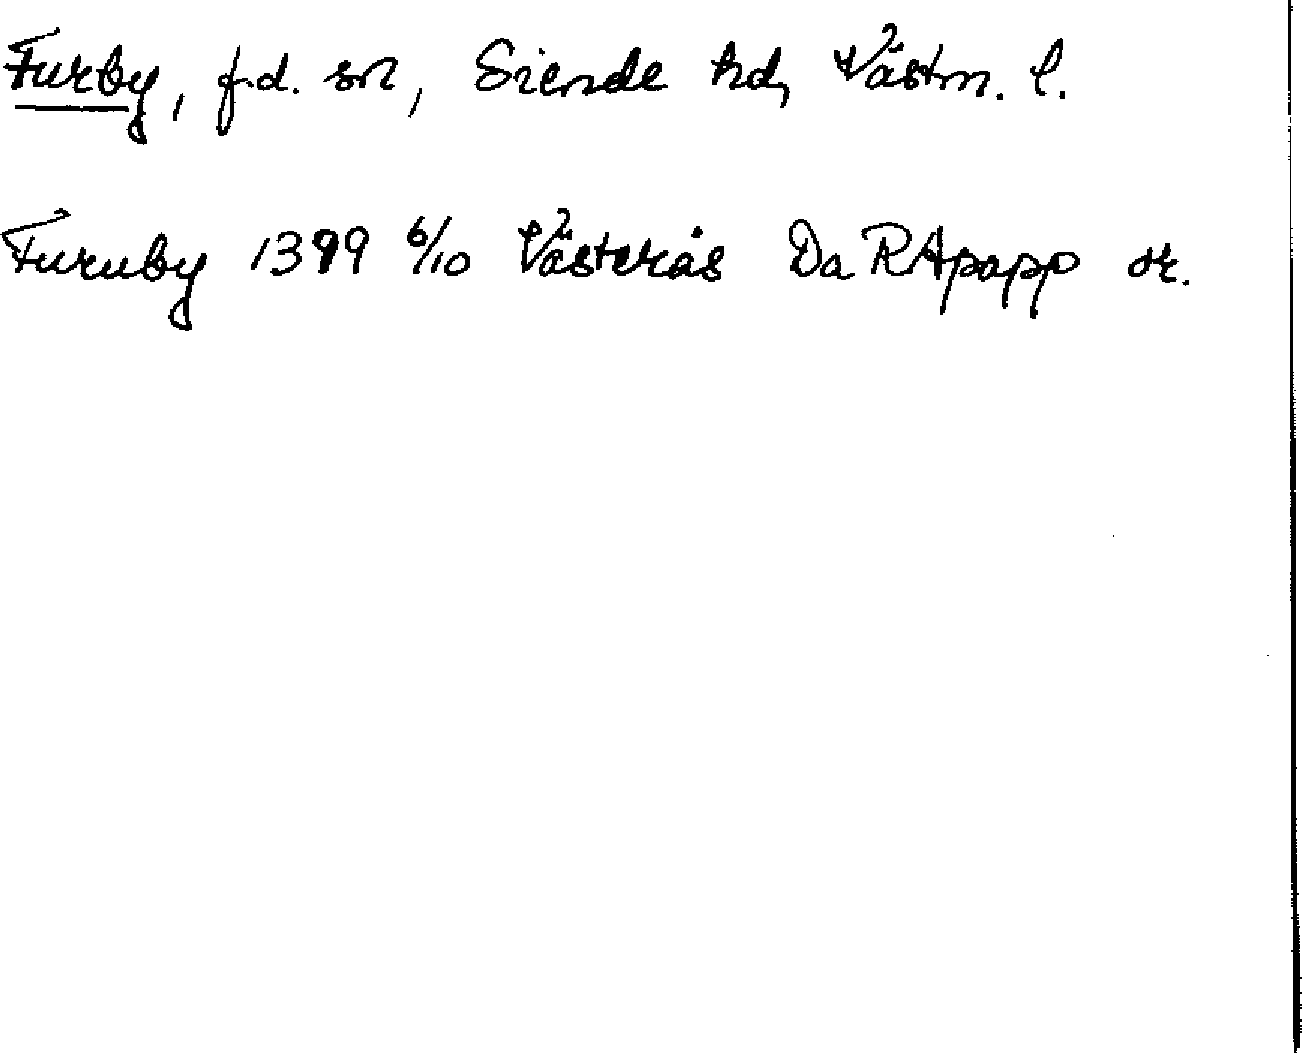 Furby, f.d. sn, Siende hd, Västm. l.
Furuby 1399 6/10 Västerås Da RApapp or.